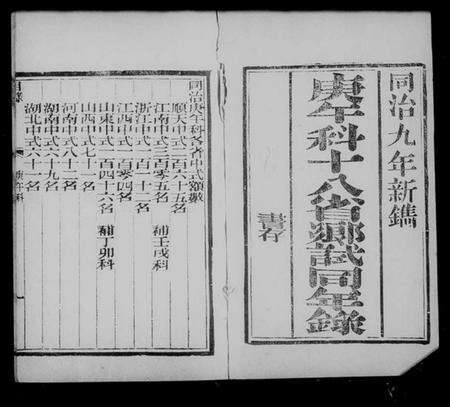 同治九年新鐫
庚午科十八省鄉試同年錄
書存
同治庚午科各省中式額數
順天中式二百六十五名
江南中式三百零五名 補壬戌科
浙江中式一百一十二名
江西中式一百零四名
山東中式一百四十六名 補丁卯科
山西中式七十一名
河南中式八十二名
湖南中式六十九名
湖北中式六十一名
目錄
庚午科